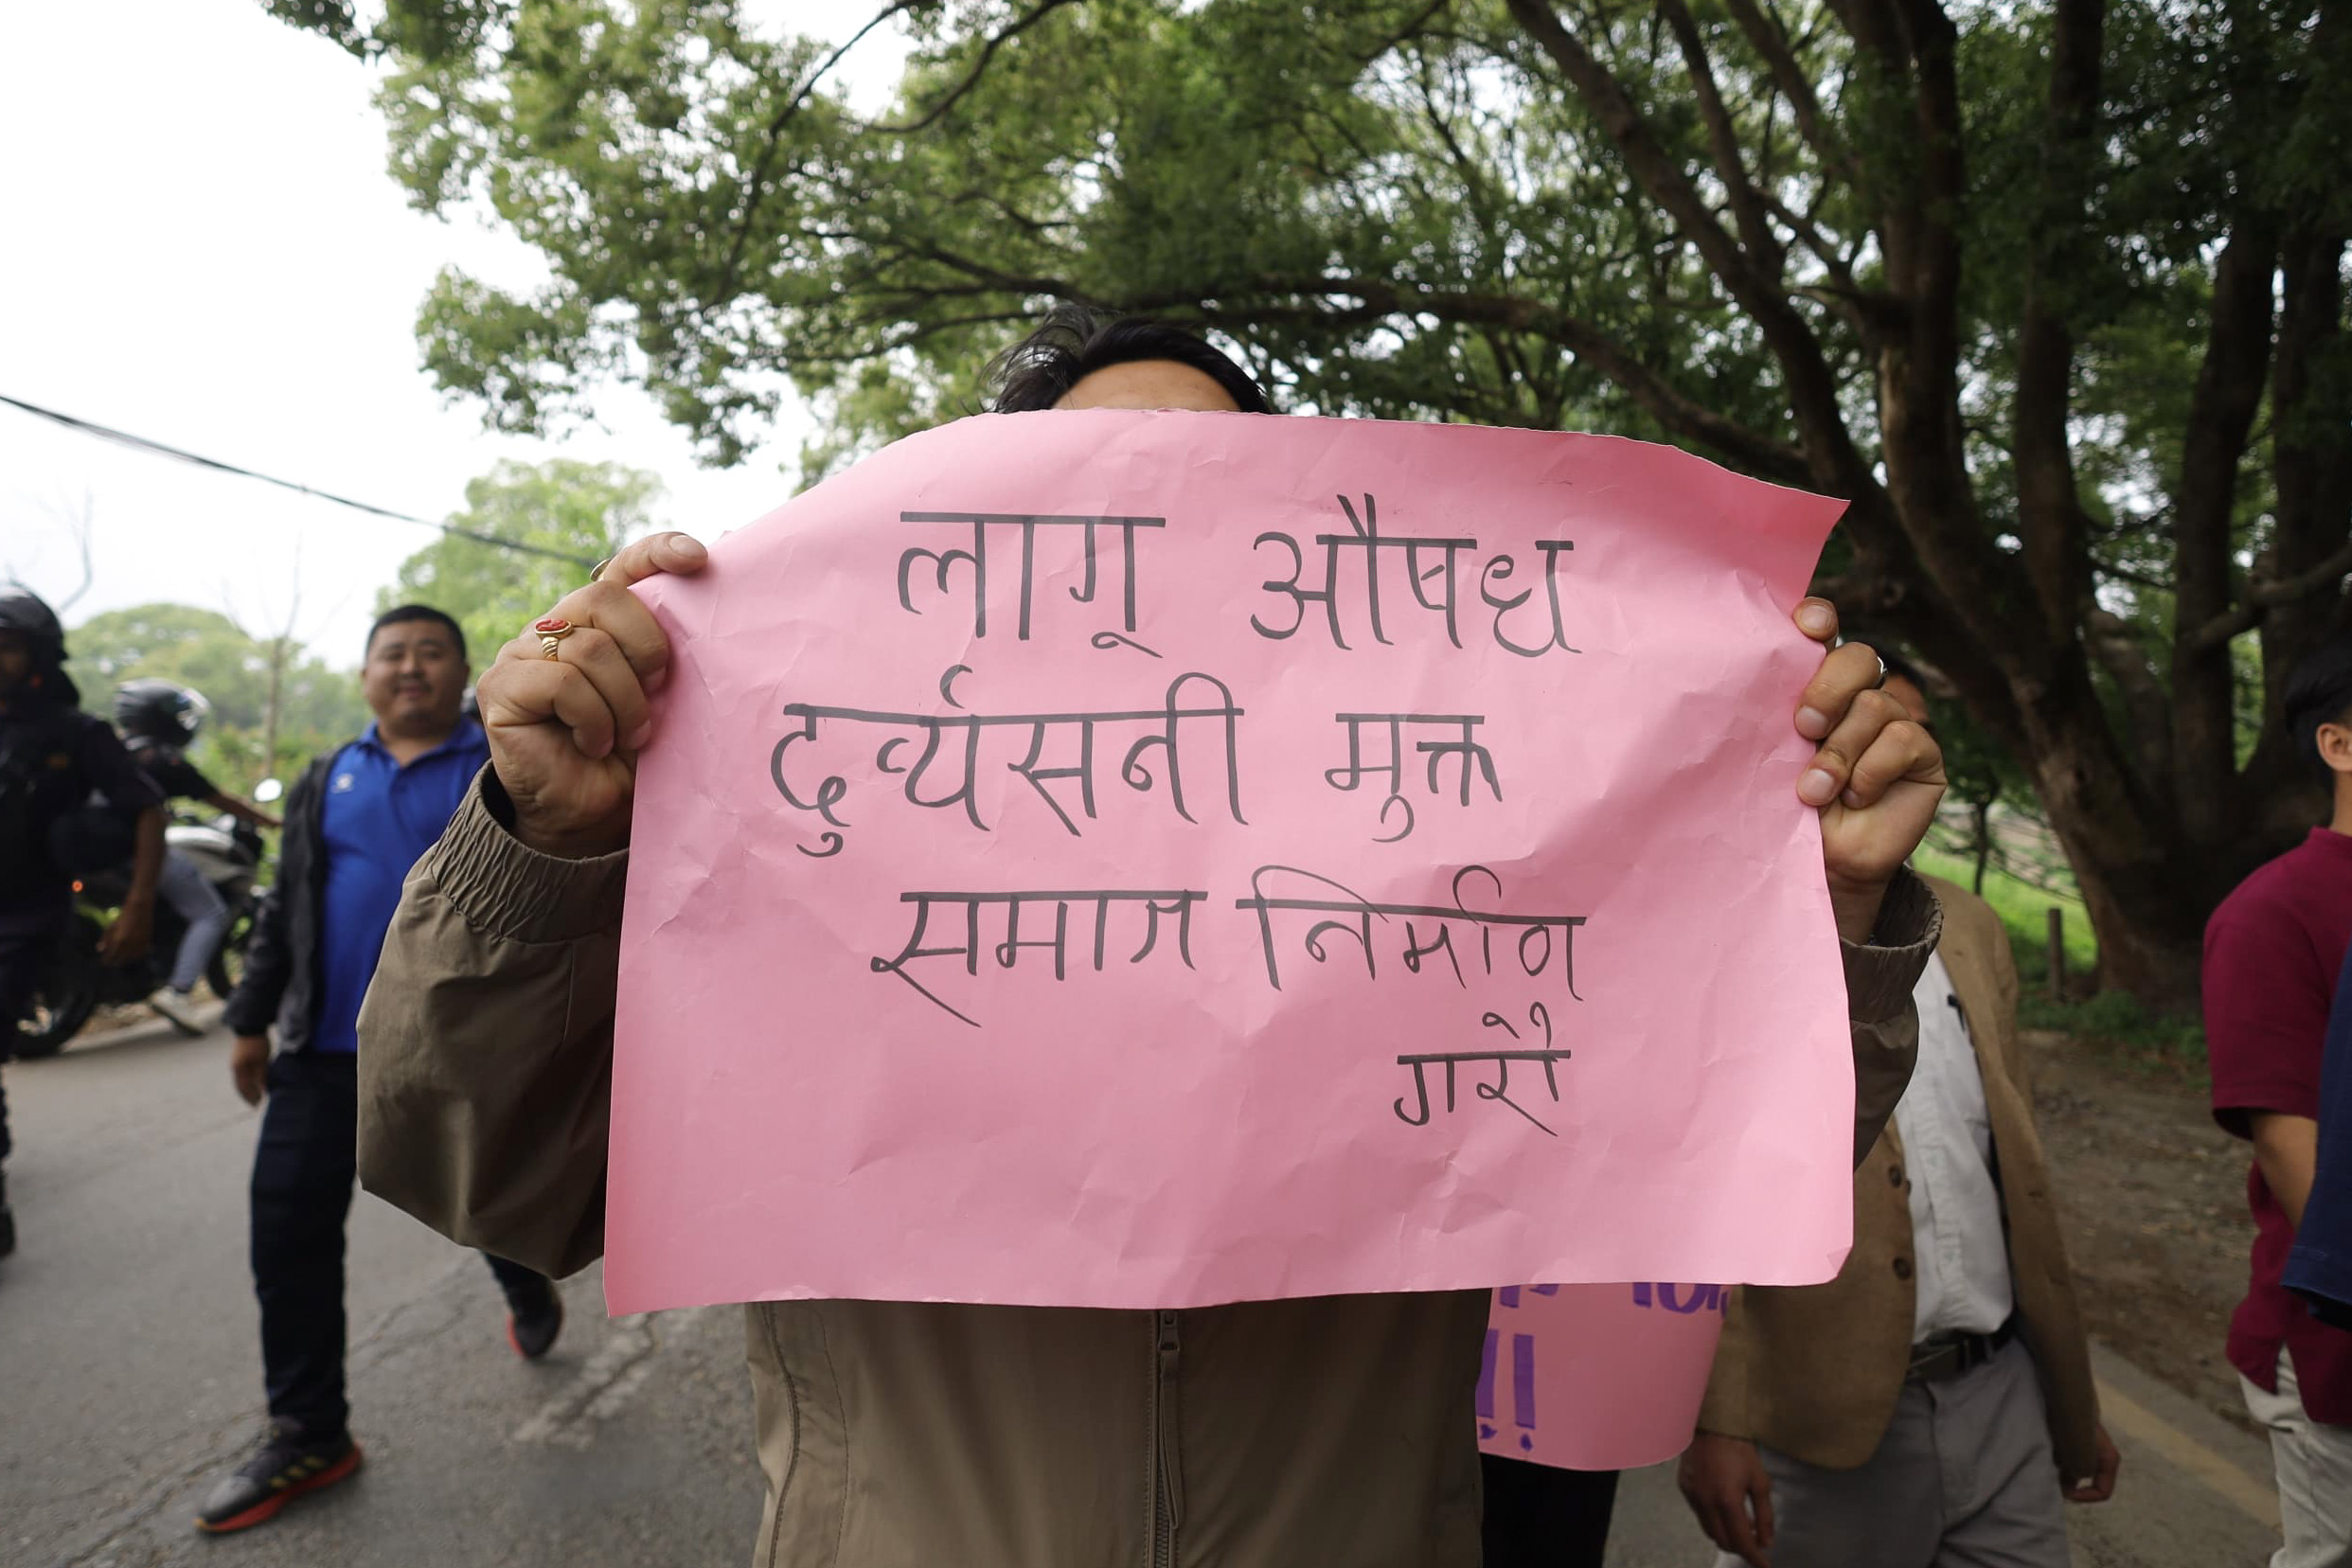 लागू औषध
दुर्व्यसनी मुक्त
समाज निर्माण
गरौं
!!